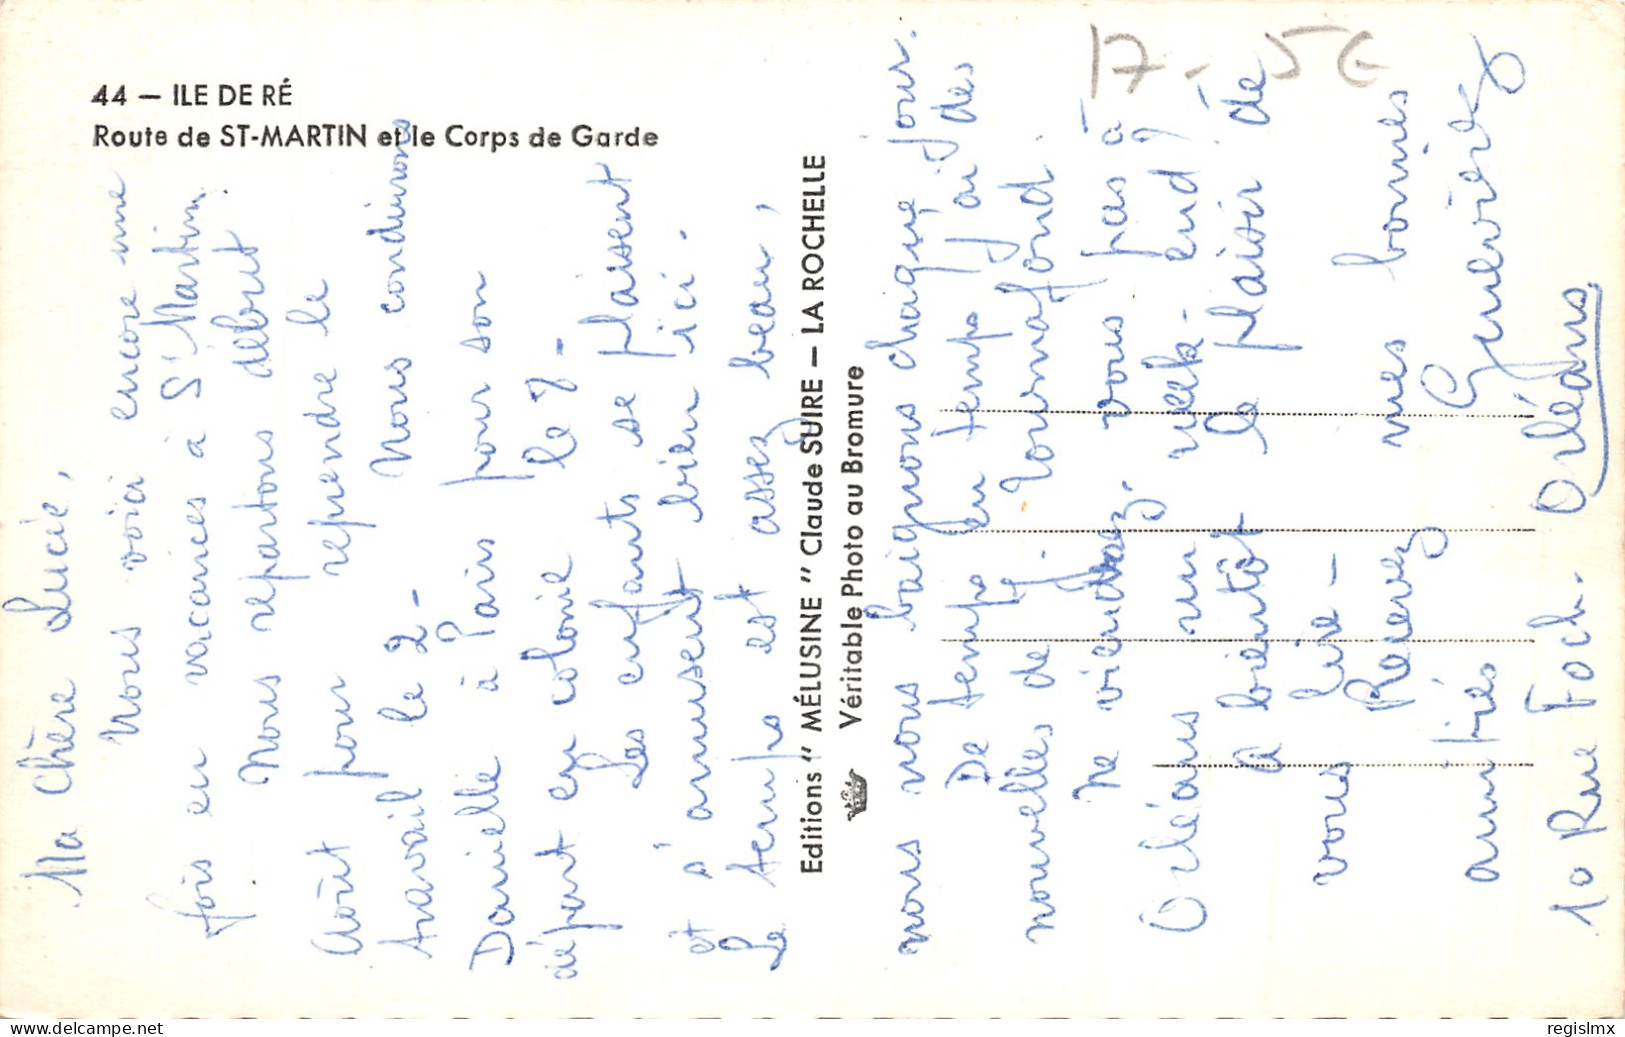 44 — ILE DE RÉ
Route de ST-MARTIN et le Corps de Garde
17 - 5€
Ma Chère Lucie,
Nous voici encore une
fois en vacances à St Martin.
Nous repartons début
Août pour reprendre le
travail le 2 - Nous conduirons
Danielle à Paris pour son
départ en colonie le 7 -
Les enfants se plaisent
et s'amusent bien ici.
Le temps est assez beau,
Editions " MÉLUSINE " Claude SUIRE — LA ROCHELLE
Véritable Photo au Bromure
nous nous baignons chaque jour.
De temps en temps j'ai des
nouvelles de
Ne viendrez-vous pas à
Orléans un week-end ?
A bientôt le plaisir de
vous lire -
Recevez mes bonnes
amitiés Geneviève
10 Rue Foch. Orléans
www.delcampe.net
regislmx